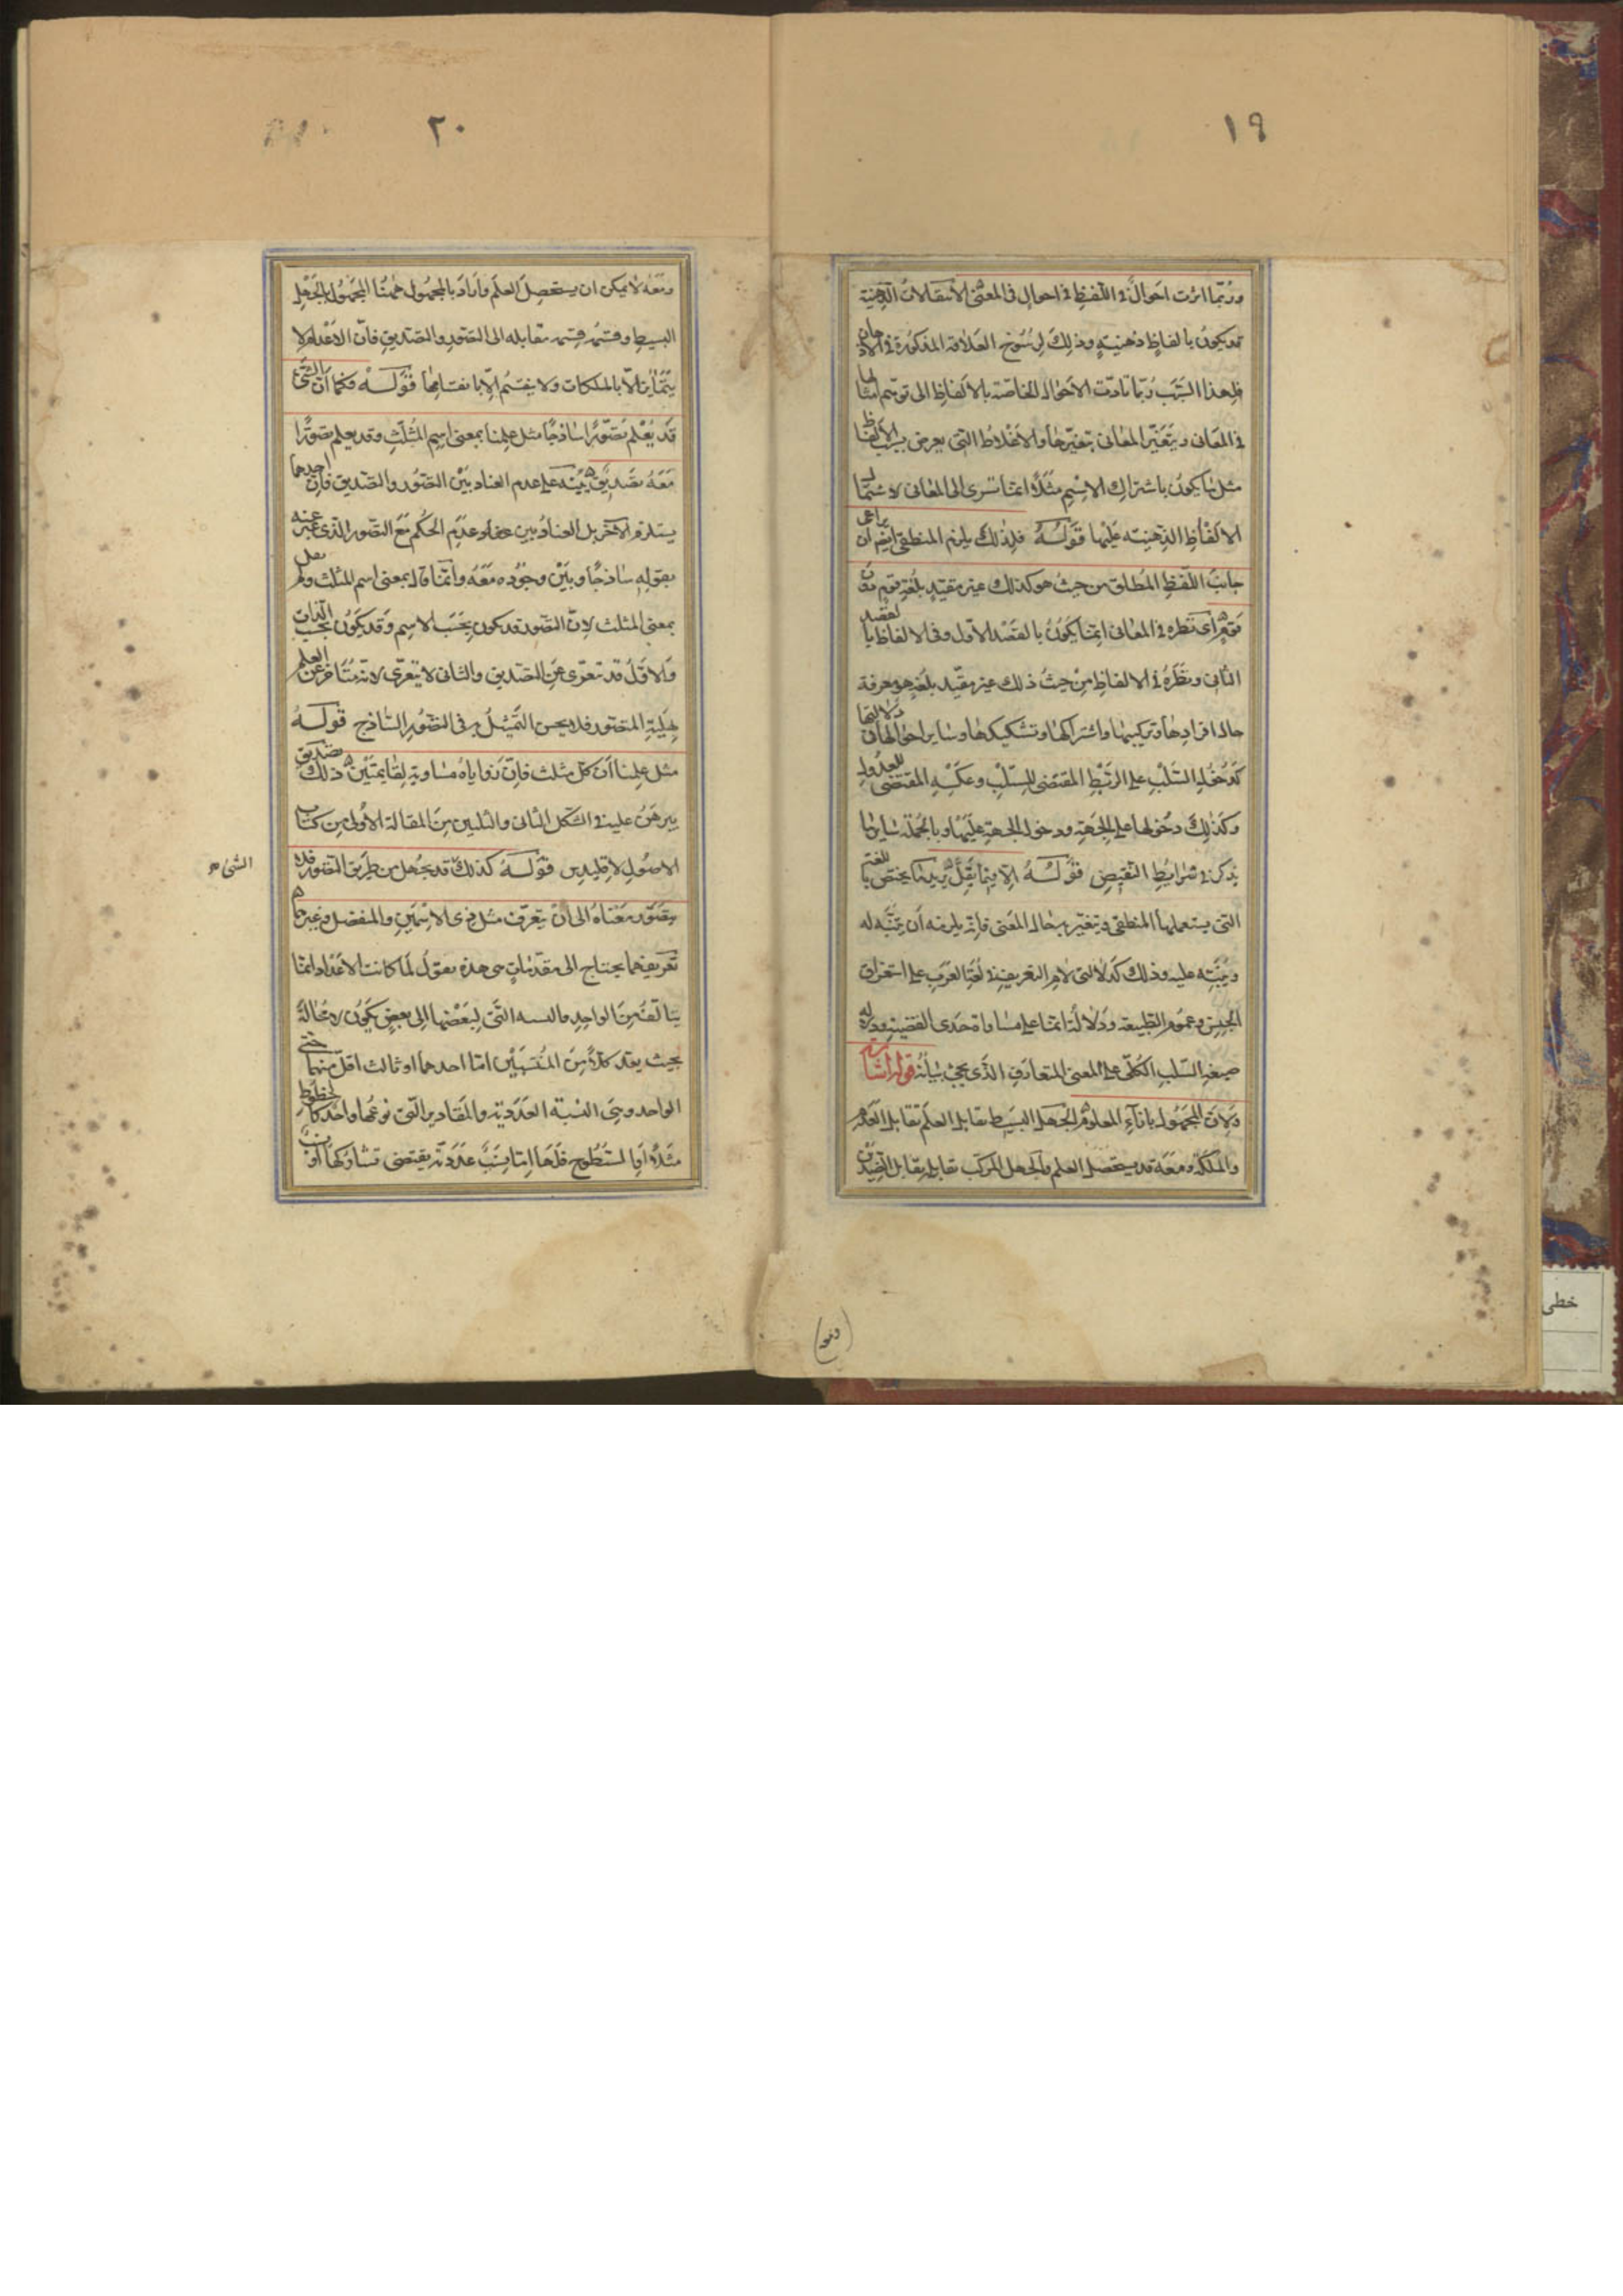 ١٩
وربما اثرت احوال في اللفظ في احوال في المعنى الانتقالات الذهنية
قد يكون بالفاظ ذهنية وذلك لرسوخ العلاقة المذكورة في الاذهان
فلهذا السبب ربما تادت الاحوال الخاصة بالالفاظ الى توهم امثالها
في المعاني ويتغير المعاني بتغيرها والاغلاط التي يعرض بسبب الالفاظ
مثل ما يكون باشتراك الاسم مثلا انما تسرى الى المعاني لاشتمال
الالفاظ الذهنية عليها قوله فلذلك يلزم المنطقي ايضا ان يراعى
جانب اللفظ المطلق من حيث هو كذلك غير مقيد بلغة قوم دون
قوم اى نظره في المعاني انما يكون بالقصد الاول وفي الالفاظ بالقصد
الثاني ونظره في الالفاظ من حيث ذلك غير مقيد بلغة هو معرفة
حال افرادها وتركيبها واشتراكها وتشكيكها وساير احوالها في دلالتها
كدخول السلب على الربط المقتضى للسلب وعكسه المقتضى للعدول
وكذلك دخولها على الجهة ودخول الجهة عليها وبالجملة ساير ما
يذكر في شرايط النقيض قوله الا فيما يقل يريد ما يختص باللغة
التي يستعملها المنطقي ويتغير بها حال المعنى فانه يلزمه ان يتنبه له
وينبه عليه وذلك كدلالتي لام التعريف في لغة العرب على استغراق
الجنس وعموم الطبيعة ودلالة انما على مساواة حدى القضية ودلالة
صيغة السلب الكلي على المعنى المتعارف الذي يجئ بيانه قوله اشارة
ولان المجهول بازاء المعلوم الجهل البسيط يقابل العلم تقابل العدم
والملكة ومعه قد يستحصل العلم والجهل المركب تقابله تقابل الضدين
(ومع)
٢٠
ومعه لا يمكن ان يستحصل العلم واراد بالمجهول ههنا المجهول بالجهل
البسيط وقسمه قسمة مقابله الى التصور والتصديق فان الاعدام لا
يتمايز الا بالملكات ولا ينقسم الا بانقسامها قوله فكما ان الشئ
قد يعلم تصورا ساذجا مثل علمنا بمعنى اسم المثلث وقد يعلم تصورا
معه تصديق ينبه على عدم العناد بين التصور والتصديق فان احدهما
يستلزم الاخر بل العناد بين عدم الحكم مع التصور الذي عبر عنه
بقوله ساذجا وبين وجوده معه وانما قال بمعنى اسم المثلث ولم يقل
بمعنى المثلث لان التصور قد يكون بحسب الاسم وقد يكون بحسب الذات
والاول قد تعرى عن التصديق والثاني لا يتعرى لانه متاخر عن العلم
بهلية المتصور فلا يحسن التمثيل به في التصور الساذج قوله
مثل علمنا ان كل مثلث فان زواياه مساوية لقايمتين ذلك تصديق
يبرهن عليه في الشكل الثاني والثلثين من المقالة الاولى من كتاب
الاصول لاقليدس قوله كذلك قد يجهل من طريق التصور فلا
الشئ صح
يتصور معناه الى ان يتعرف مثل ذي الاسمين والمنفصل وغيرهما
تعريفهما يحتاج الى مقدمات هي هذه نقول لما كانت الاعداد انما
يتالف من الواحد فالنسبة التي لبعضها الى بعض يكون لا محالة
بحيث يعد كلا من المنتسبين اما احدهما او ثالث اقل منهما حتى
الواحد وهي النسبة العددية والمقادير التي نوعها واحد كالخطوط
مثلا او السطوح فلها اما نسب عددية يقتضى تشاركها او